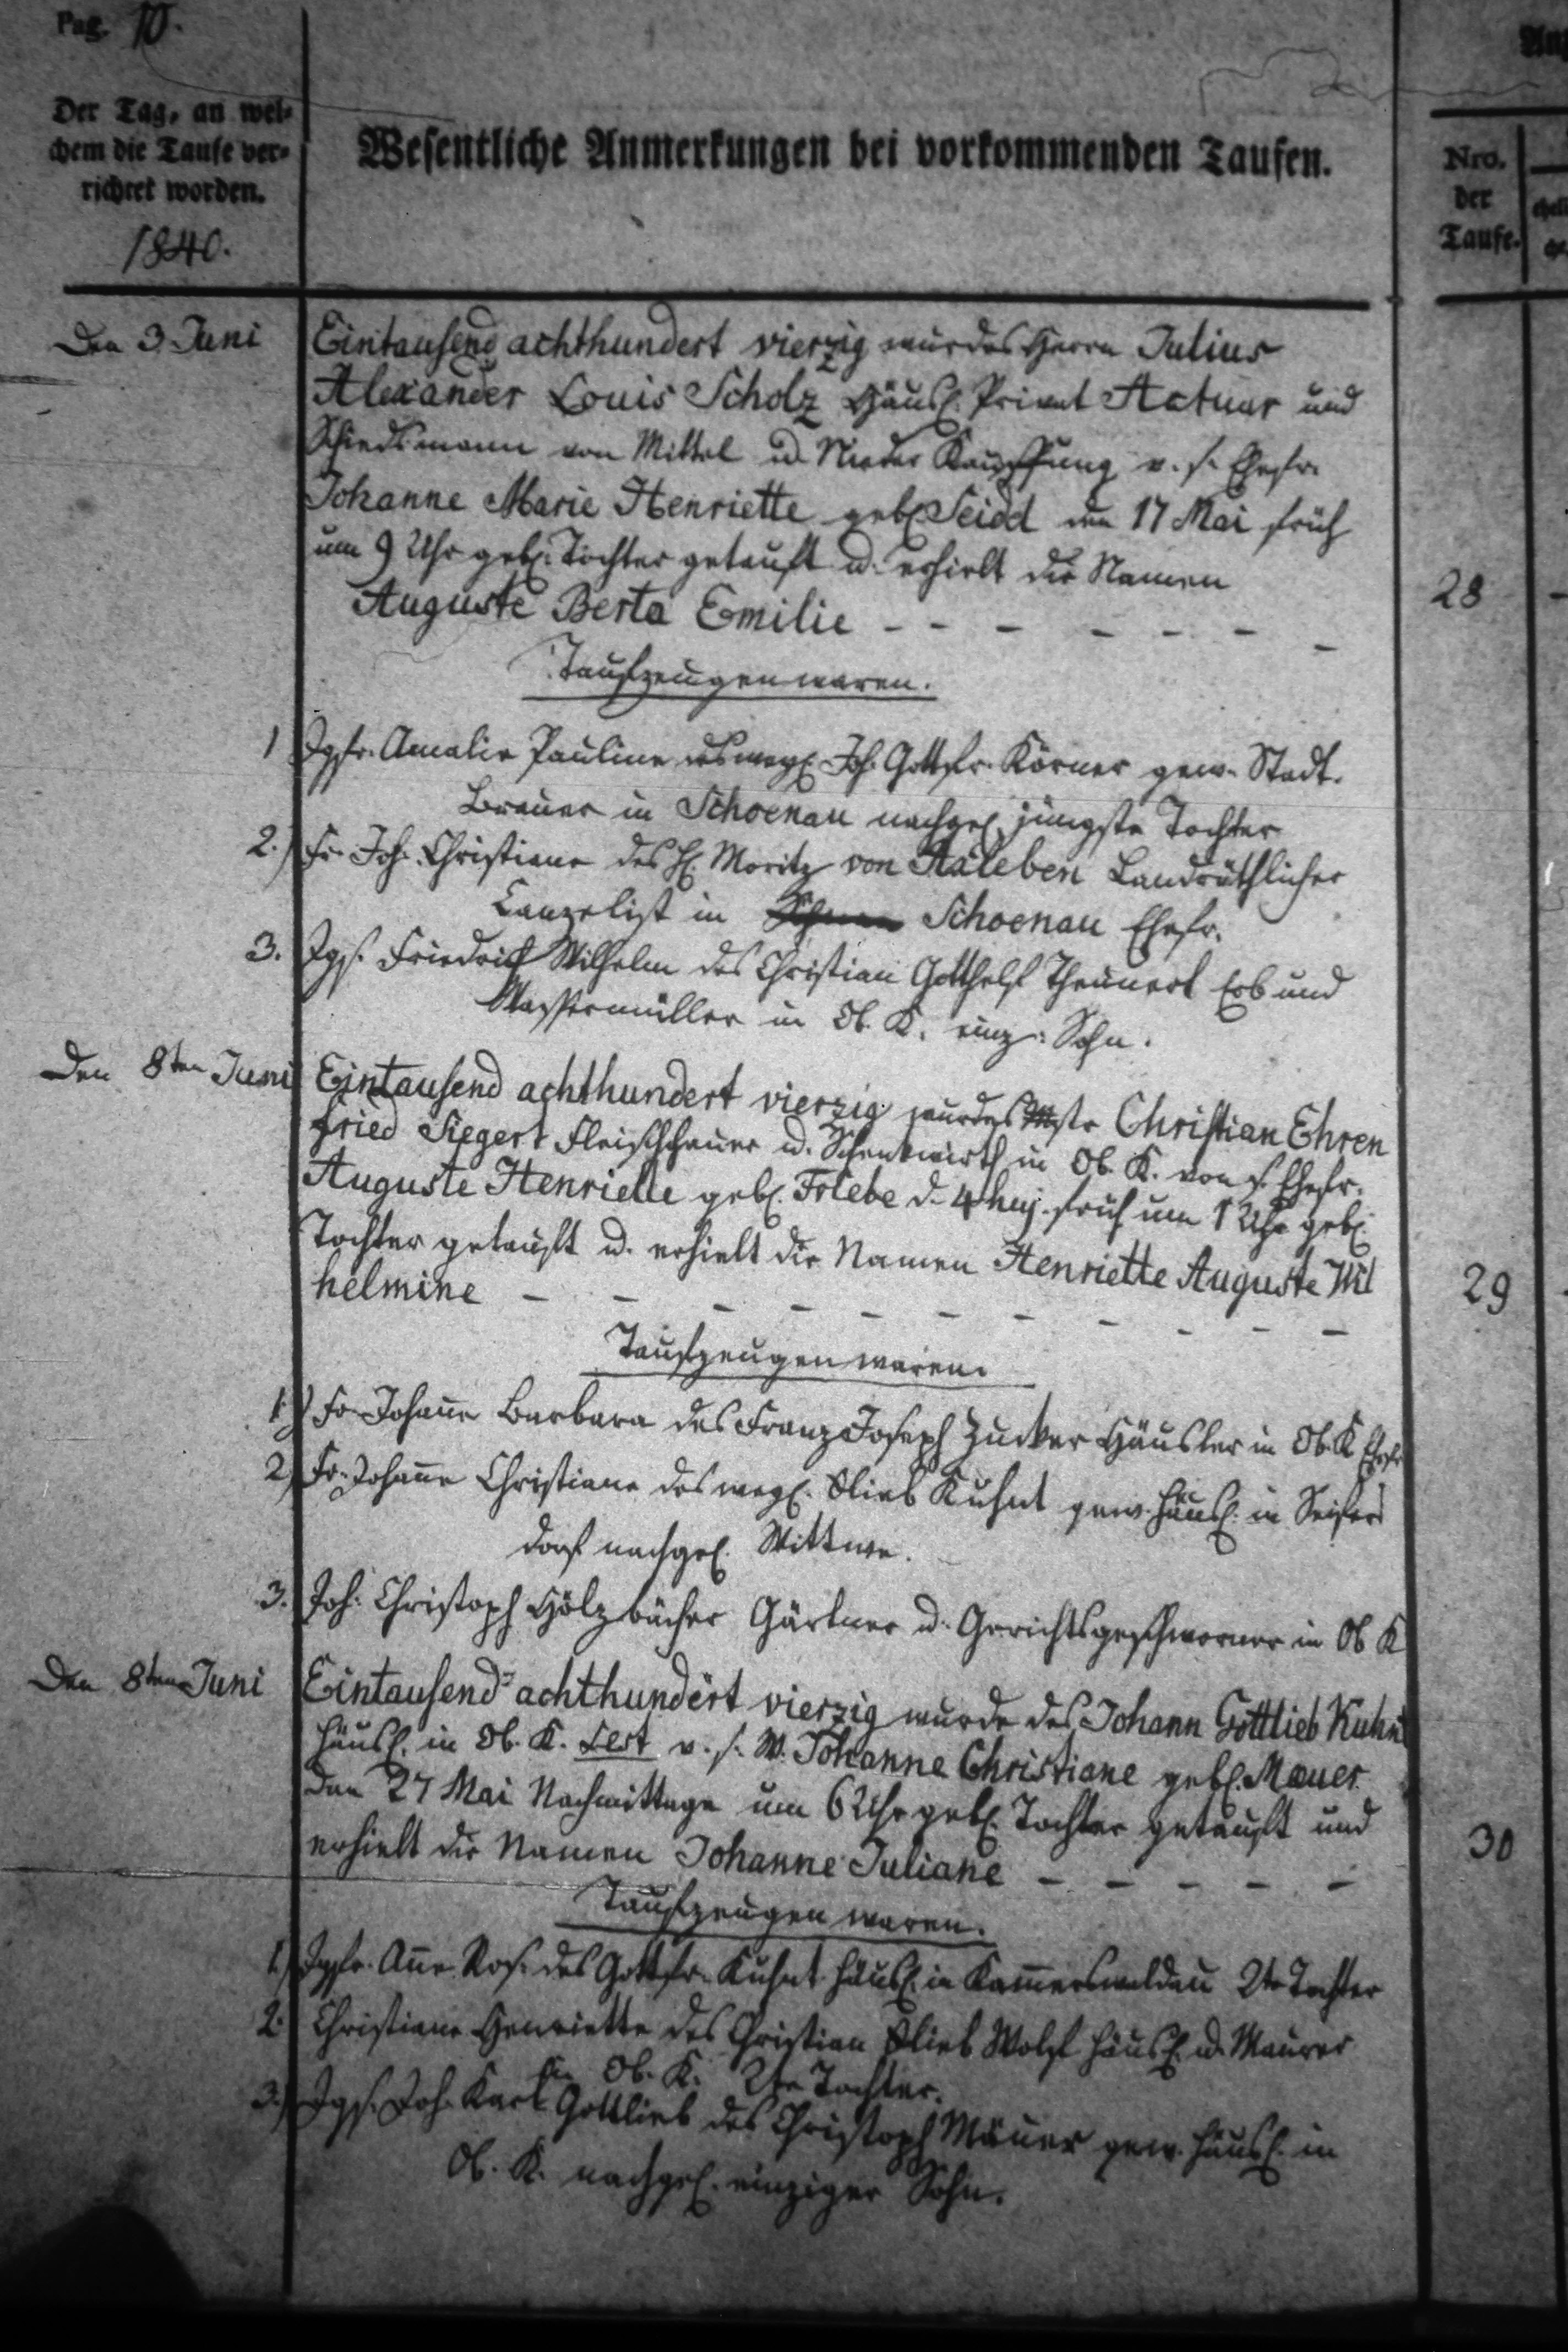 Pag. 10.
Der Tag, an wel-
chem die Taufe ver-
richtet worden.
1840.
Wesentliche Anmerkungen bei vorkommenden Taufen.
Nro.
der
Taufe.
Den 3. Juni
Eintausend achthundert vierzig wurde des Herrn Julius
Alexander Louis Scholz Häusl. Privat Actuar und
Schiedsmann von Mittel u. Nieder Kauffung v. s. Ehefr.
Johanne Marie Henriette geb. Seidel den 17 Mai früh
um 9 Uhr geb. Tochter getauft u. erhielt die Namen
Auguste Berta Emilie - - - - - - -
28
Taufzeugen waren.
1 Jgfr. Amalie Pauline des weyl. Joh. Gottfr. Körner gew. Stadt.
Brauer in Schoenau nachgel. jüngste Tochter
2.) Fr. Joh. Christiane des H. Moritz von Landräthlicher
Canzelist in Schoenau Ehefr.
3. Jggs. Friedrich Wilhelm des Christian Gotthelf Theunert Erb und
Wassermüller in Ob. K. einz. Sohn.
Den 8ten Juni
Eintausend achthundert vierzig wurde des Mstr Christian Ehren
fried Siegert Fleischhauer u. Schenkwirth in Ob. K. von s. Ehefr.
Auguste Henriette geb. Friebe d. 4 huj. früh um 1 Uhr geb.
Tochter getauft u. erhielt die Namen Henriette Auguste Wil
helmine - - - - - - - - - - -
29
Taufzeugen waren.
1.) Fr. Johanne Barbara des Franz Joseph Zucker Häusler in Ob. K Ehefr
2) Fr. Johanne Christiane des weyl. Glieb Kuhnt gew. Häusl. in Seifers
dorf nachgel. Wittwe.
3. Joh. Christoph Hölzbächer Gärtner u. Gerichtsgeschworner in Ob K
Den 8ten Juni
Eintausend achthundert vierzig wurde des Johann Gottlieb Kuhnt
Häusl. in Ob. K. Lest v. s. W. Johanne Christiane geb. Mauer
den 27 Mai Nachmittags um 6 Uhr geb. Tochter getauft und
erhielt die Namen Johanne Juliane - - - - -
30
Taufzeugen waren.
1.) Jgfr. Anne Ros. des Gottfr. Kuhnt Häusl. in Kamerswaldau 2te Tochter
2. Christiane Henriette des Christian Glieb Wolf Häusl. u. Maurer
in Ob. K. 2te Tochter.
3.) Jggs. Joh. Karl Gottlieb des Christoph Mauer gew. Häusl. in
Ob. K. nachgel. einziger Sohn.